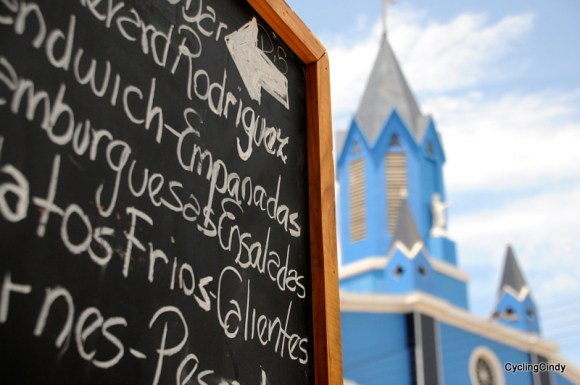 erard Rodriguez
endwich-Empanadas
emburguesas Ensalades
atos Frios-Calientes
rnes-Pes
CyclingCindy